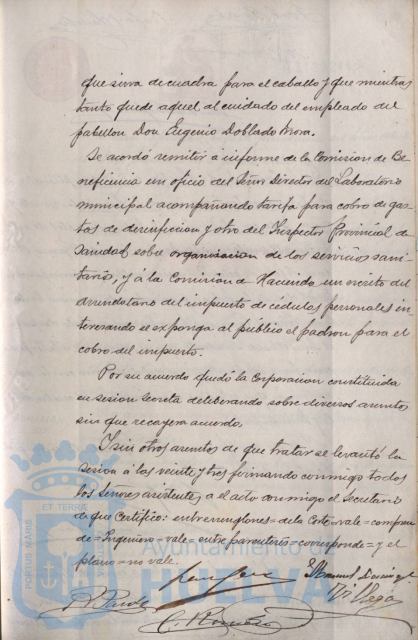 que sirva de cuadra para el caballo y que mientras
tanto quede aquel al cuidado del empleado del
pabellon Don Eugenio Doblado Mora.
Se acordó remitir á informe de la Comision de Be
neficencia un oficio del Señor Director del Laboratorio
municipal acompañando tarifa para cobro de gas
tos de desinfeccion y otro del Inspector Provincial de
Sanidad sobre organizacion de los servicios sani
tarios, y á la Comision de Hacienda un escrito del
arrendatario del impuesto de cédulas personales in
teresando se exponga al público el padron para el
cobro del impuesto.
Por su acuerdo quedó la Corporacion constituida
en sesion secreta deliberando sobre diversos asuntos
sin que recayera acuerdo.
Y sin otros asuntos de que tratar se levantó la
sesion á las veinte y tres firmando conmigo todos
los Señores asistentes, a el acto conmigo el Secretario
de que Certifico: entrerenglones = de la Corte = vale = compren
de = Ingeniero = vale = entre parentesis = corresponde = y el
plano = no vale.
Manuel Dominguez
Villegas
R. Pardo
ET TERRAE
PORTUS MARIS
Ayuntamiento de
HUELVA